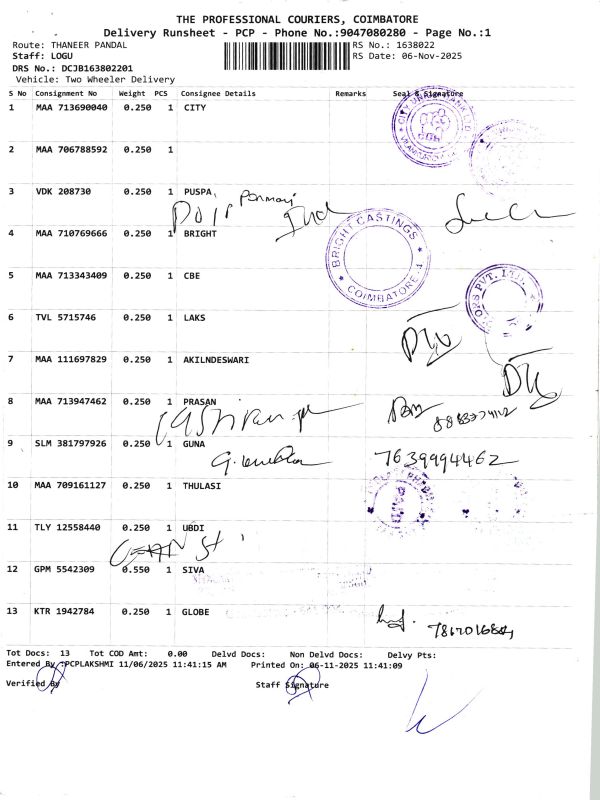 THE PROFESSIONAL COURIERS, COIMBATORE
Delivery Runsheet - PCP - Phone No.:9047080280 - Page No.:1
Route: THANEER PANDAL RS No.: 1638022
Staff: LOGU RS Date: 06-Nov-2025
DRS No.: DCJB163802201
Vehicle: Two Wheeler Delivery
S No Consignment No Weight PCS Consignee Details Remarks Seal & Signature
1 MAA 713690040 0.250 1 CITY
2 MAA 706788592 0.250 1
3 VDK 208730 0.250 1 PUSPA
4 MAA 710769666 0.250 1 BRIGHT
BRIGHT CASTINGS
COIMBATORE
5 MAA 713343409 0.250 1 CBE
PVT. LTD.
6 TVL 5715746 0.250 1 LAKS
7 MAA 111697829 0.250 1 AKILNDESWARI
8 MAA 713947462 0.250 1 PRASAN
9 SLM 381797926 0.250 1 GUNA
7639994462
10 MAA 709161127 0.250 1 THULASI
11 TLY 12558440 0.250 1 UBDI
12 GPM 5542309 0.550 1 SIVA
13 KTR 1942784 0.250 1 GLOBE
Tot Docs: 13 Tot COD Amt: 0.00 Delvd Docs: Non Delvd Docs: Delvy Pts:
Entered By :PCPLAKSHMI 11/06/2025 11:41:15 AM Printed On: 06-11-2025 11:41:09
Verified By Staff Signature